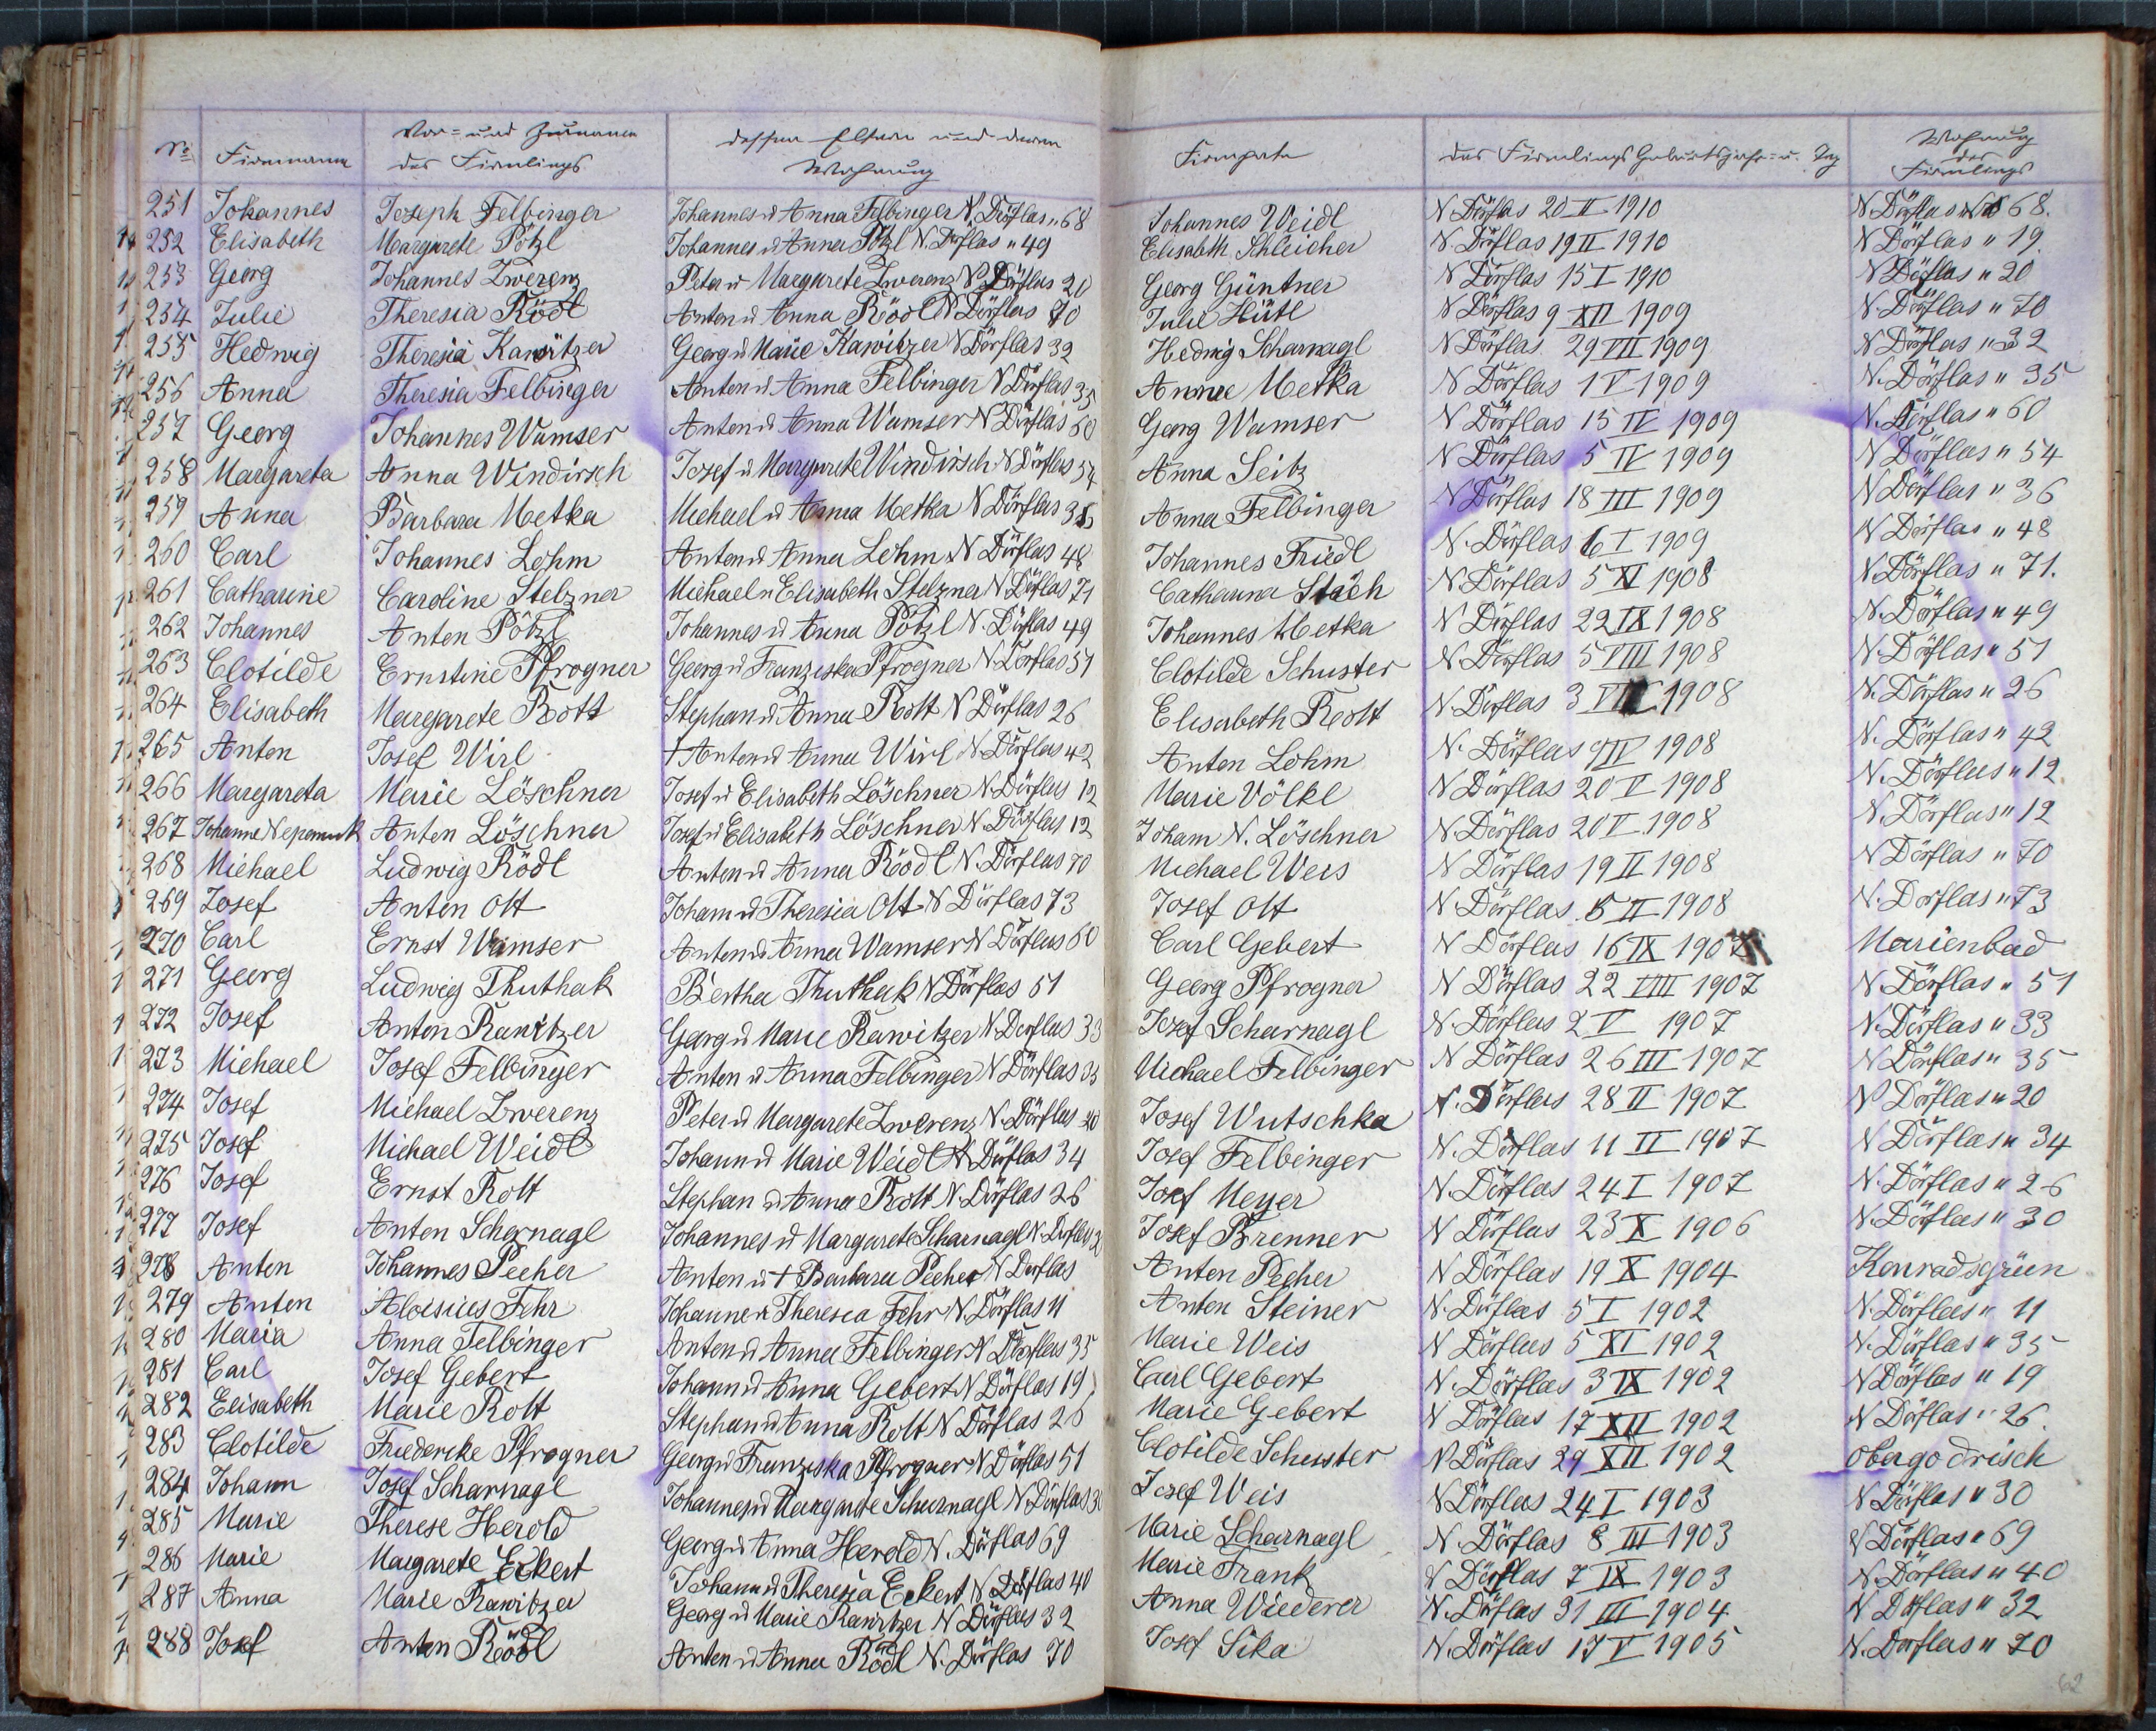 No Firmname Vor= und Zuname des Firmlings dessen Eltern und deren Wohnung Firmpate des Firmlings Geburtsjahr= u. Tag Wohnung des Firmlings
251 Johannes Joseph Felbinger Johannes u Anna Felbinger N. Dörflas " 68 Johannes Weidl N Dörflas 20 II 1910 N. Dörflas No 68.
252 Elisabeth Margarete Pötzl Johannes u Anna Pötzl N. Dörflas " 49 Elisabeth Schleicher N. Dörflas 19 II 1910 N Dörflas " 19.
253 Georg Johannes Zwerenz Peter u Margarete Zwerenz N. Dörflas 20 Georg Güntner N Dörflas 15 I 1910 N Dörflas " 20
254 Julie Theresia Rödl Anton u Anna Rödl N Dörflas 70 Julie Hütl N Dörflas 9 XII 1909 N. Dörflas " 70
255 Hedwig Theresia Rawitzer Georg u Marie Rawitzer N Dörflas 32 Hedwig Scharnagl N Dörflas 29 VII 1909 N Dörflas " 32
256 Anna Theresia Felbinger Anton u Anna Felbinger N Dörflas 35 Anna Metka N Dörflas 1 V 1909 N. Dörflas " 35
257 Georg Johannes Wamser Anton u Anna Wamser N Dörflas 60 Georg Wamser N Dörflas 15 IV 1909 N. Dörflas " 60
258 Margareta Anna Windirsch Josef u Margarete Windirsch N Dörflas 54 Anna Seitz N Dörflas 5 IV 1909 N Dörflas " 54
259 Anna Barbara Metka Michael u Anna Metka N Dörflas 36 Anna Felbinger N Dörflas 18 III 1909 N Dörflas " 36
260 Carl Johannes Lohm Anton u Anna Lohm N Dörflas 48 Johannes Friedl N. Dörflas 6 I 1909 N Dörflas " 48
261 Catharine Caroline Stelzner Michael u Elisabeth Stelzner N Dörflas 71 Catharina Stach N Dörflas 5 XI 1908 N Dörflas " 71.
262 Johannes Anton Pötzl Johannes u Anna Pötzl N. Dörflas 49 Johannes Metka N Dörflas 22 IX 1908 N. Dörflas " 49
263 Clotilde Ernstine Pfrogner Georg u Franziska Pfrogner N. Dörflas 51 Clotilde Schuster N Dörflas 5 VIII 1908 N. Dörflas " 51
264 Elisabeth Margarete Rott Stephan u Anna Rott N Dörflas 26 Elisabeth Rott N. Dörflas 3 1908 N. Dörflas " 26
265 Anton Josef Wirl † Anton u Anna Wirl N. Dörflas 42 Anton Lohm N. Dörflas 1908 N. Dörflas " 42
266 Margareta Marie Löschner Josef u Elisabeth Löschner N. Dörflas 12 Marie Völkl N Dörflas 20 V 1908 N. Dörflas " 12.
267 Johanne Nepomuk Anton Löschner Josef u Elisabeth Löschner N. Dörflas 12 Joham N. Löschner N Dörflas 20 V 1908 N. Dörflas " 12
268 Michael Ludwig Rödl Anton u Anna Rödl N. Dörflas 70 Michael Weis N Dörflas 19 II 1908 N Dörflas " 70
269 Josef Anton Ott Joham u Theresia Ott N Dörflas 73 Josef Ott N Dörflas 5 II 1908 N. Dörflas " 73
270 Carl Ernst Wamser Anton u Anna Wamser N Dörflas 60 Carl Gebert N Dörflas 16 IX 1907 Marienbad
271 Georg Ludwig Thuthak Bertha Thuthak N Dörflas 51 Georg Pfrogner N Dörflas 22 VIII 1907 N Dörflas " 51
272 Josef Anton Rawitzer Georg u Marie Rawitzer N Dörflas 33 Josef Scharnagl N. Dörflas 2 V 1907 N. Dörflas " 33
273 Michael Josef Felbinger Anton u Anna Felbinger N Dörflas 35 Michael Felbinger N Dörflas 26 III 1907 N Dörflas " 35
274 Josef Michael Zwerenz Peter u Margarete Zwerenz N. Dörflas 20 Josef Wutschka N. Dörflas 28 II 1907 N Dörflas " 20
275 Josef Michael Weidl Johann u Marie Weidl N Dörflas 34 Josef Felbinger N. Dörflas 11 II 1907 N Dörflas " 34
276 Josef Ernst Rott Stephan u Anna Rott N. Dörflas 26 Josef Meyer N. Dörflas 24 I 1907 N. Dörflas " 26
277 Josef Anton Scharnagl Johannes u Margarete Scharnagl N. Dörflas Josef Brenner N Dörflas 23 X 1906 N. Dörflas " 30
278 Anton Johannes Pecher Anton u † Barbara Pecher N Dörflas Anton Pecher N Dörflas 19 X 1904 Konradsgrün
279 Anton Aloisius Fehr Johanne u Theresia Fehr N. Dörflas 11 Anton Steiner N. Dörflas 5 I 1902 N. Dörflas " 11
280 Maria Anna Felbinger Anton u Anna Felbinger N Dörflas 35 Marie Weis N Dörflas 5 XI 1902 N. Dörflas " 35
281 Carl Josef Gebert Johann u Anna Gebert N Dörflas 19 Carl Gebert N. Dörflas 3 IX 1902 N Dörflas " 19
282 Elisabeth Marie Rott Stephan u Anna Rott N Dörflas 26 Marie Gebert N Dörflas 17 XII 1902 N Dörflas " 26.
283 Clotilde Friedericke Pfrogner Georg u Franziska Pfrogner N Dörflas 51 Clotilde Schuster N Dörflas 29 XII 1902 obergodrisch
284 Johann Josef Scharnagl Johannes u Margarete Scharnagl N Dörflas 30 Josef Weis N Dörflas 24 I 1903 N Dörflas " 30
285 Marie Therese Herold Georg u Anna Herold N. Dörflas 69 Marie Scharnagl N. Dörflas 8 III 1903 N Dörflas " 69
286 Marie Margarete Eckert Johann u Theresia Eckert N Dörflas 40 Marie Frank N Dörflas 7 IX 1903 N. Dörflas " 40
287 Anna Marie Rawitzer Georg u Marie Rawitzer N Dörflas 32 Anna Wiederer N. Dörflas 31 III 1904 N Dörflas " 32
288 Josef Anton Rödl Anton u Anna Rödl N. Dörflas 70 Josef Sika N. Dörflas 17 V 1905 N. Dörflas " 70
62